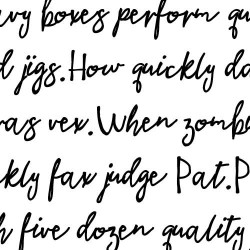 avy boxes perform qu
d jigs.How quickly da
was vex.When zomb
kly fax judge Pat.P
h five dozen quality